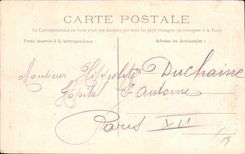 CARTE POSTALE
La Correspondance au recto n'est pas acceptée par tous les pays étrangers (se renseigner à la Poste)
Partie réservée à la correspondance
Adresse du destinataire
Monsieur Hippolyte Duchaine
Hopital St Antoine
Paris XII